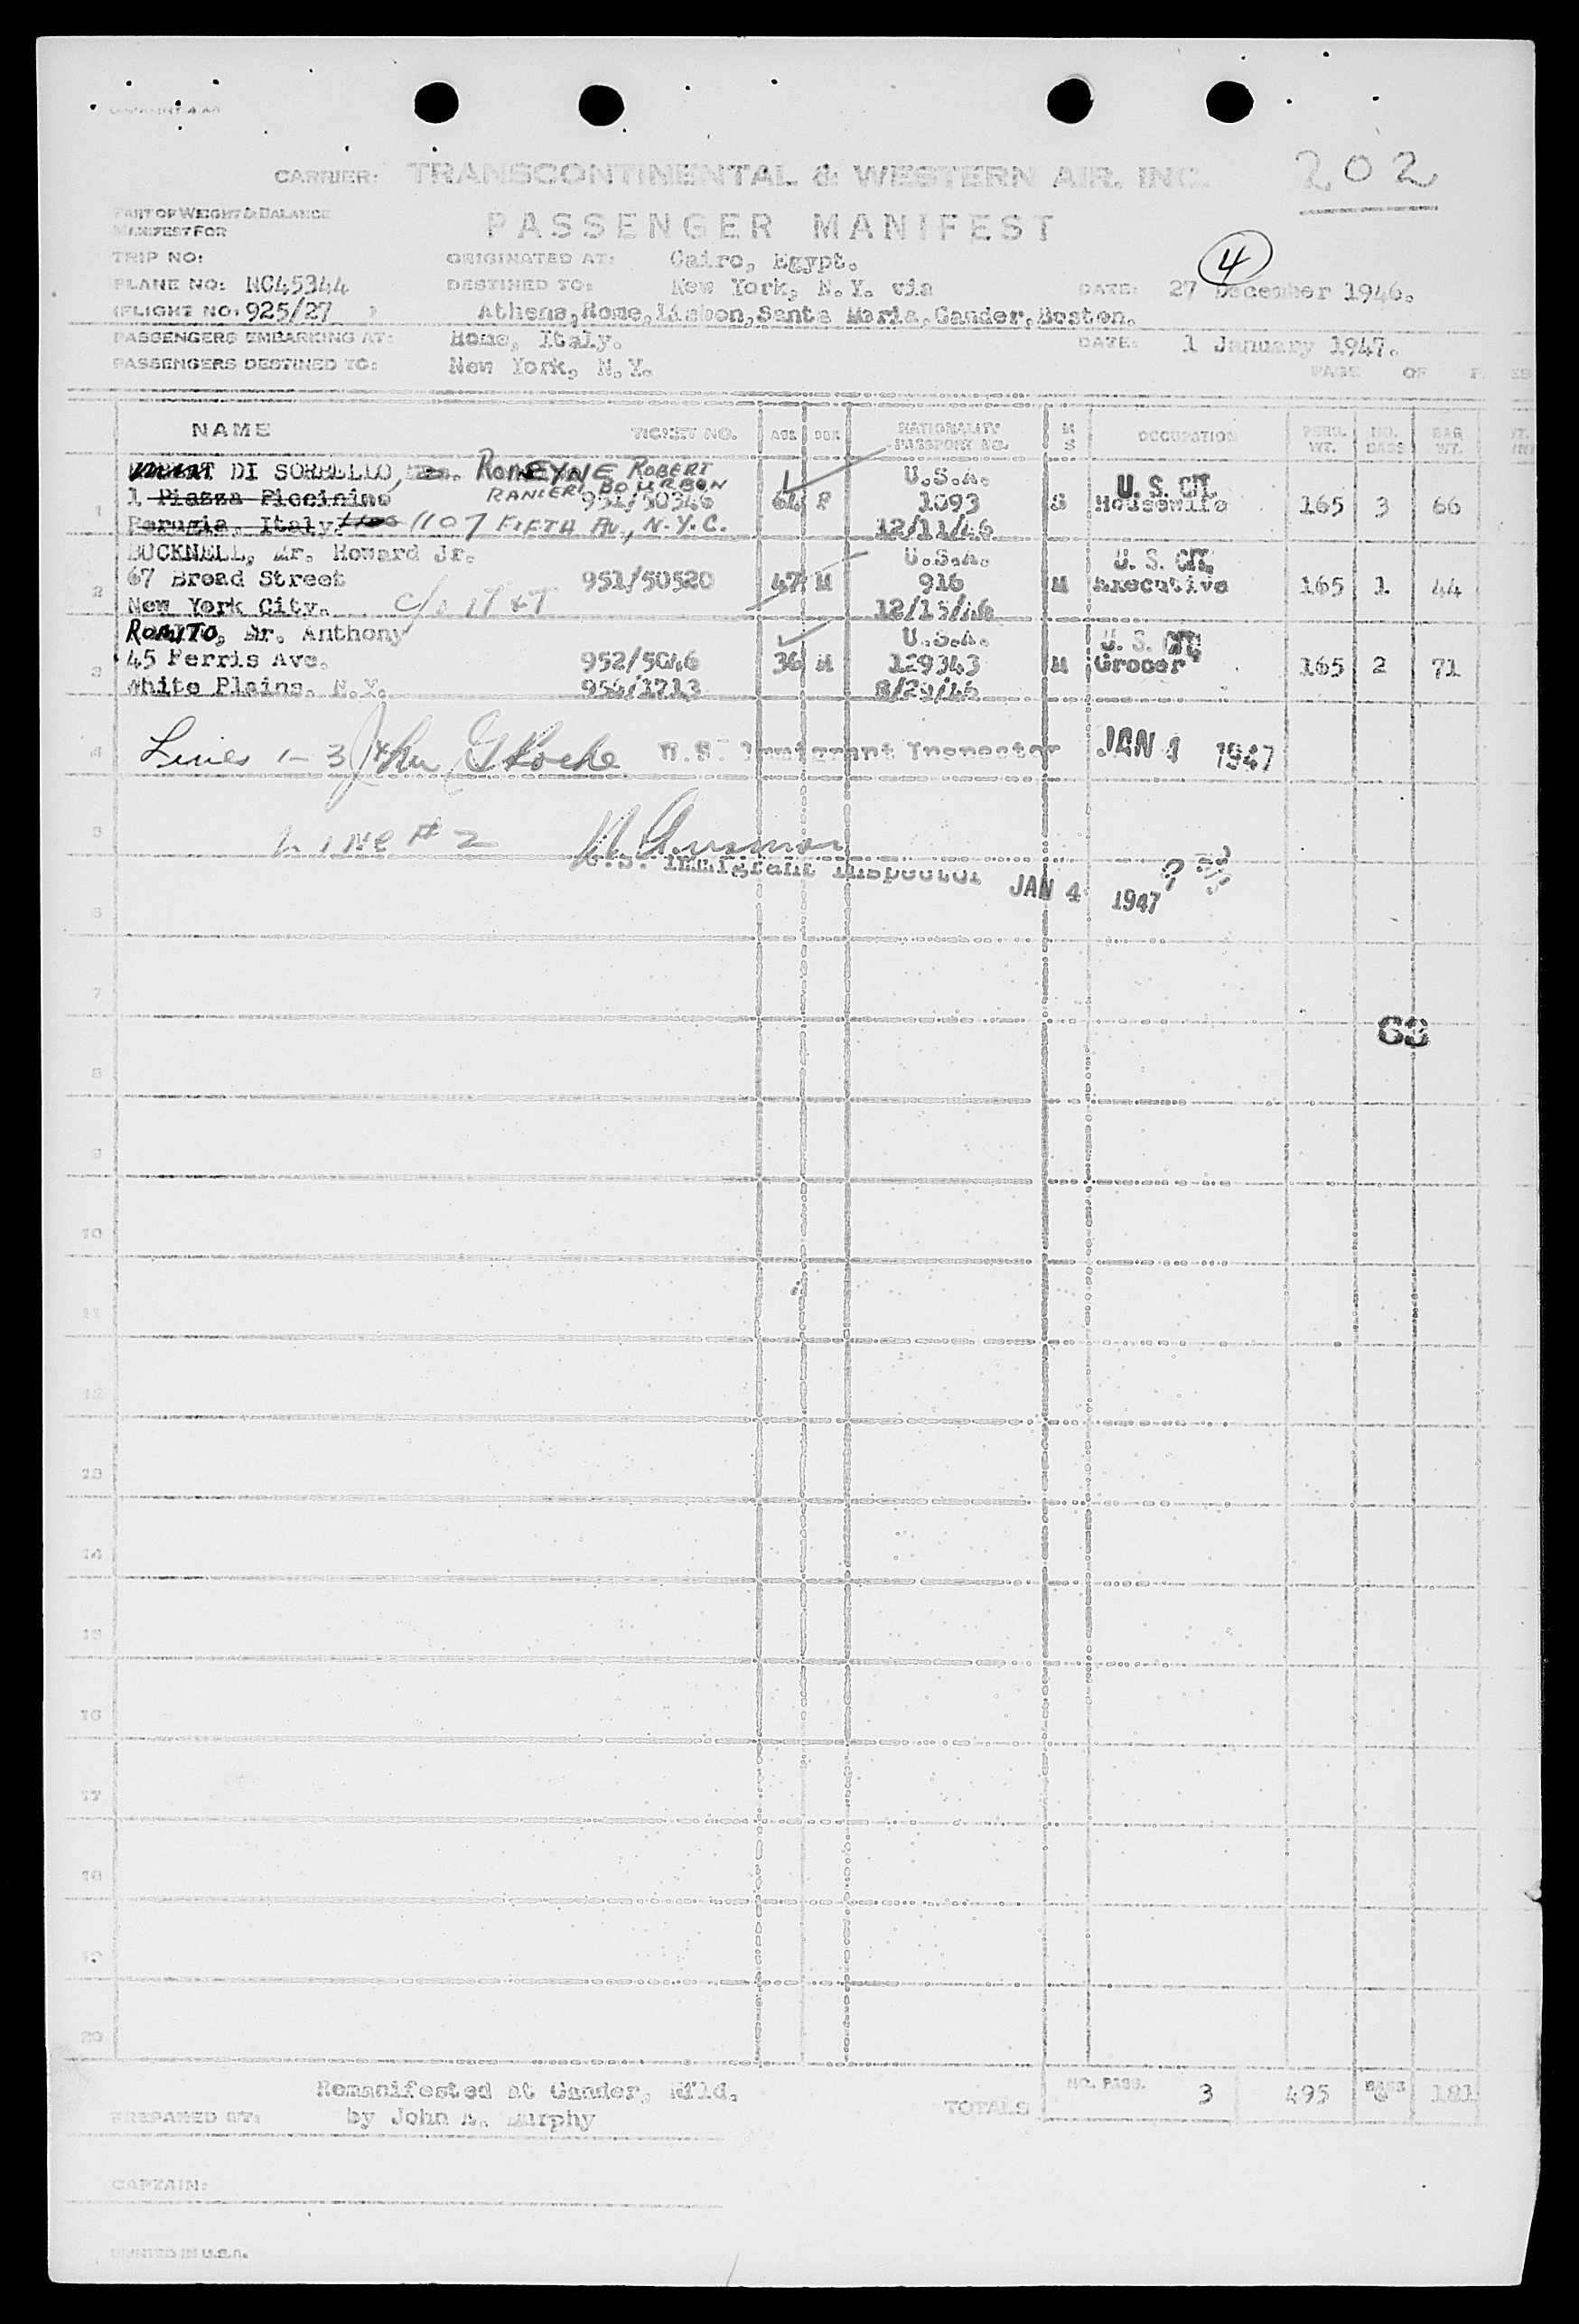 202
CARRIER: TRANSCONTINENTAL & WESTERN AIR, INC.
PART OF WEIGHT & BALANCE
MANIFEST FOR
PASSENGER MANIFEST
4
TRIP NO: ORIGINATED AT: Cairo, Egypt.
PLANE NO: NC45344 DESTINED TO: New York, N.Y. via DATE: 27 December 1946.
(FLIGHT NO: 925/27 ) Athens,Rome,Lisbon,Santa Maria,Gander,Boston.
PASSENGERS EMBARKING AT: Rome, Italy. DATE: 1 January 1947.
PASSENGERS DESTINED TO: New York, N.Y.
PAGE OF
NAME TICKET NO. AGE SEX NATIONALITY PASSPORT NO. M S OCCUPATION PERS. WT. NO. BAGS BAG WT.
DI SORBELLO, ROMEYNE ROBERT U.S.A.
RANIERI BOURBON U. S. CIT.
1 1 Piazza Piccinino 951/50346 64 F 1093 S Housewife 165 3 66
Perugia, Italy. 1107 FIFTH AV., N.Y.C. 12/11/46
BUCKNELL, Mr. Howard Jr. U.S.A. U. S. CIT.
2 67 Broad Street 951/50520 47 M 916 M Executive 165 1 44
New York City. c/o IT&T 12/15/46
ROMITO, Mr. Anthony U.S.A. U. S. CIT.
3 45 Ferris Ave. 952/5046 36 M 129343 M Grocer 165 2 71
White Plains, N.Y. 956/1713 8/29/46
4 Lines 1-3 John G Roche U.S. Immigrant Inspector JAN 1 1947
5 Line #2
U.S. Immigrant Inspector JAN 4 1947
6
7
63
8
9
10
11
12
13
14
15
16
17
18
19
20
Remanifested at Gander, Nfld.
PREPARED BY: by John A. Murphy TOTALS NO. PASS. 3 495 BAGS 6 181
CAPTAIN:
PRINTED IN U.S.A.